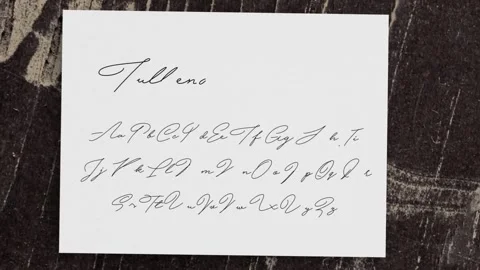 Tull eno
Aa Bb Cc Dd Ee Ff Gg Hh Ii
Jj Kk Ll Mm Nn Oo Pp Qq Rr
Ss Tt Uu Vv Ww Xx Yy Zz